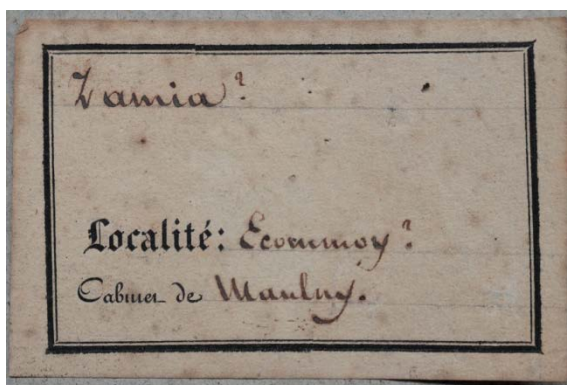 Zamia?
Localité: Ecommoy?
Cabinet de Maulny.